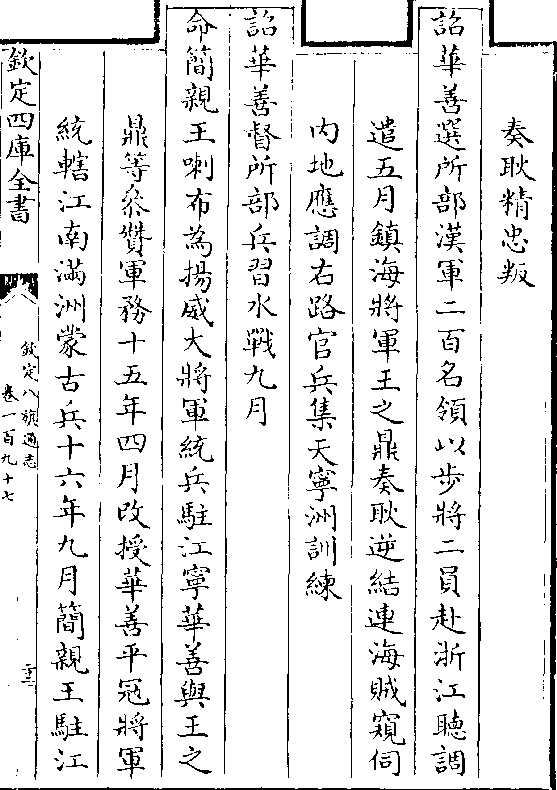 奏耿精忠叛
詔華善選所部漢軍二百名領以步將二員赴浙江聽調
遣五月鎮海將軍王之鼎奏耿逆結連海賊窺伺
内地應調右路官兵集天寧洲訓練
詔華善督所部兵習水戰九月
命簡親王喇布為揚威大將軍統兵駐江寧華善與王之
鼎等叅賛軍務十五年四月改授華善平冦將軍
統轄江南滿洲蒙古兵十六年九月簡親王駐江
欽定四庫全書
欽定八旗通志
卷一百九十七